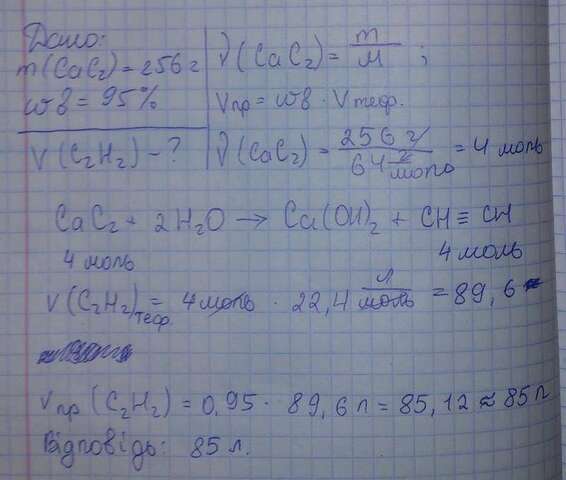 Дано:
m(CaC₂) = 256 г
wв = 95%
V(C₂H₂) - ?
ν(CaC₂) = m/M ;
Vпр = wв · Vтеор.
ν(CaC₂) = 256 г / 64 г/моль = 4 моль
CaC₂ + 2H₂O → Ca(OH)₂ + CH ≡ CH
4 моль 4 моль
V(C₂H₂)теор. = 4 моль · 22,4 л/моль = 89,6
Vпр (C₂H₂) = 0,95 · 89,6 л = 85,12 ≈ 85 л
Відповідь: 85 л.